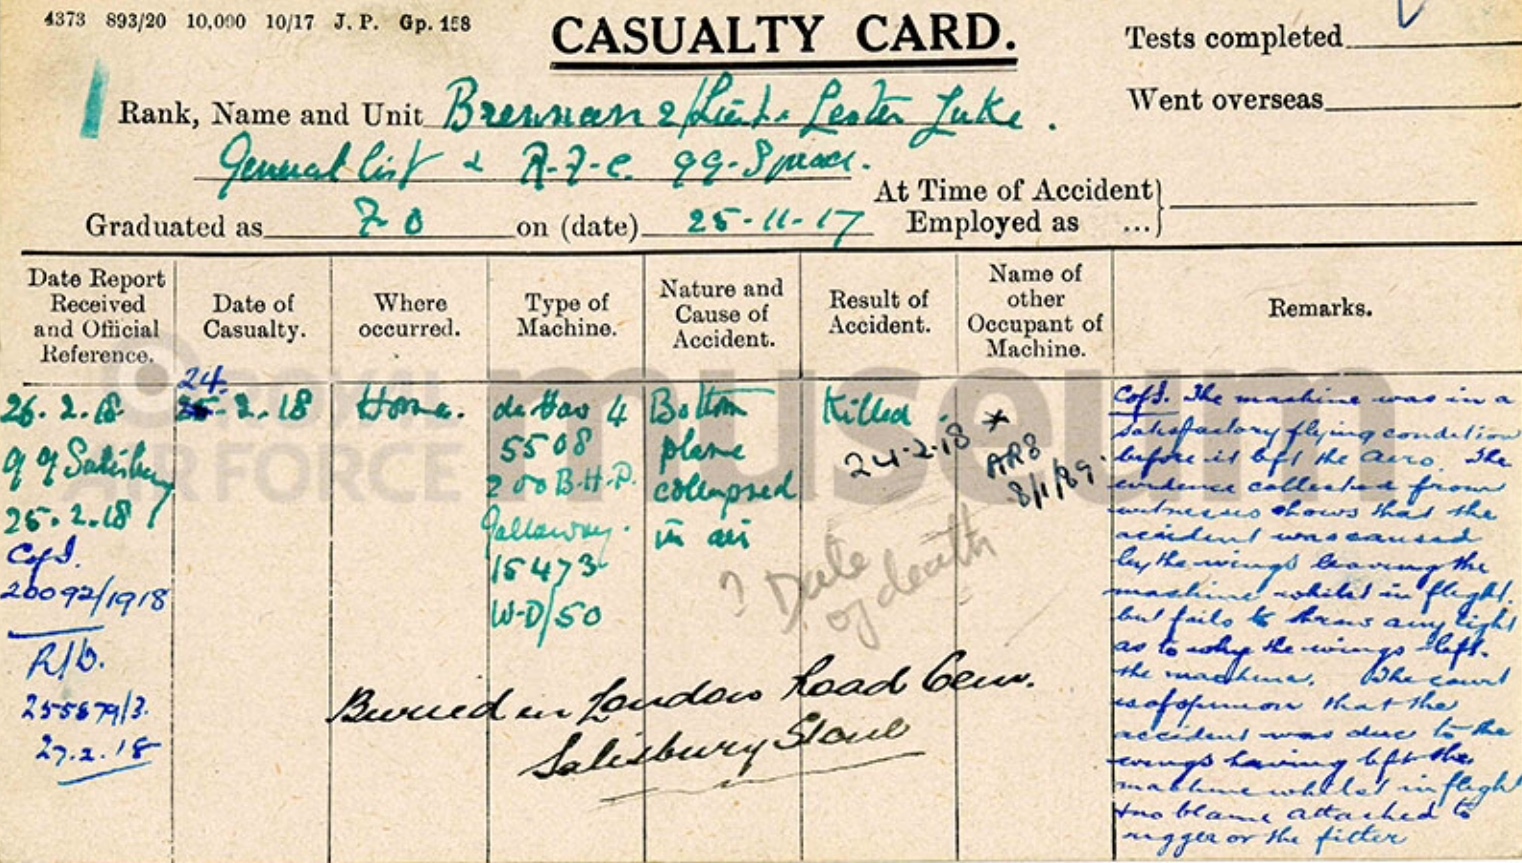 4373 893/20 10,000 10/17 J. P. Gp. 158
CASUALTY CARD.
Tests completed
Went overseas
Rank, Name and Unit Brennan 2/Lieut. Lester Luke.
General list & R.F.C. 99-Sqdn.
At Time of Accident
Employed as ...
Graduated as F O on (date) 25-11-17
Date Report Received and Official Reference.
Date of Casualty.
Where occurred.
Type of Machine.
Nature and Cause of Accident.
Result of Accident.
Name of other Occupant of Machine.
Remarks.
26.2.18
99 Salisbury
25.2.18
C of I.
20092/1918
R/D.
27.2.18
24.
2.18
Home.
de Hav 4
5508
200 B.H.P.
Galloway.
15473
W-D/50
Bottom
plane
collapsed
in air
Killed
24-2-18 *
AR8
8/1/89.
? Date
of death
Buried in London Road Cem.
Salisbury Stone
C of I. The machine was in a
satisfactory flying condition
before it left the aero. The
evidence collected from
witnesses shows that the
accident was caused
by the wings leaving the
machine whilst in flight,
but fails to throw any light
as to why the wings left
the machine. The court
is of opinion that the
accident was due to the
wings having left the
machine whilst in flight
& no blame attached to
rigger or the fitter
ROYAL
AIR FORCE
museum